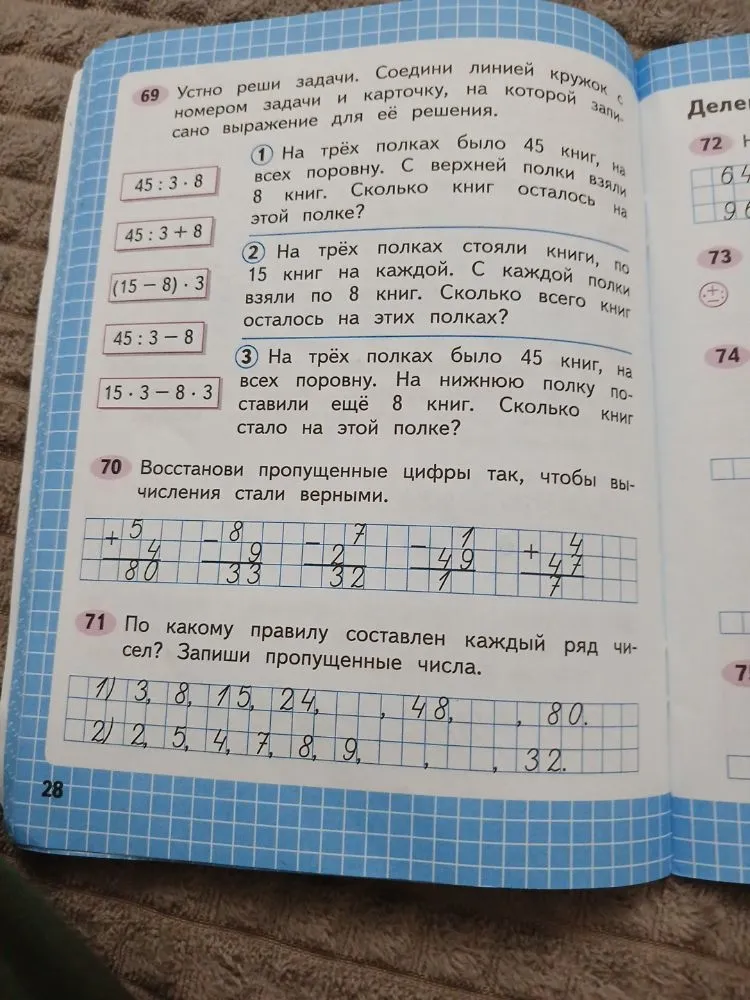 69 Устно реши задачи. Соедини линией кружок с
номером задачи и карточку, на которой запи-
сано выражение для её решения.
45 : 3 · 8
45 : 3 + 8
(15 − 8) · 3
45 : 3 − 8
15 · 3 − 8 · 3
1 На трёх полках было 45 книг, на
всех поровну. С верхней полки взяли
8 книг. Сколько книг осталось на
этой полке?
2 На трёх полках стояли книги, по
15 книг на каждой. С каждой полки
взяли по 8 книг. Сколько всего книг
осталось на этих полках?
3 На трёх полках было 45 книг, на
всех поровну. На нижнюю полку по-
ставили ещё 8 книг. Сколько книг
стало на этой полке?
70 Восстанови пропущенные цифры так, чтобы вы-
числения стали верными.
+ 5 − 8 − 7 − 1 + 4
4 9 2 49 47
80 33 32 1 7
71 По какому правилу составлен каждый ряд чи-
сел? Запиши пропущенные числа.
1) 3, 8, 15, 24, , 48, , 80.
2) 2, 5, 4, 7, 8, 9, , , 32.
28
72
73
74